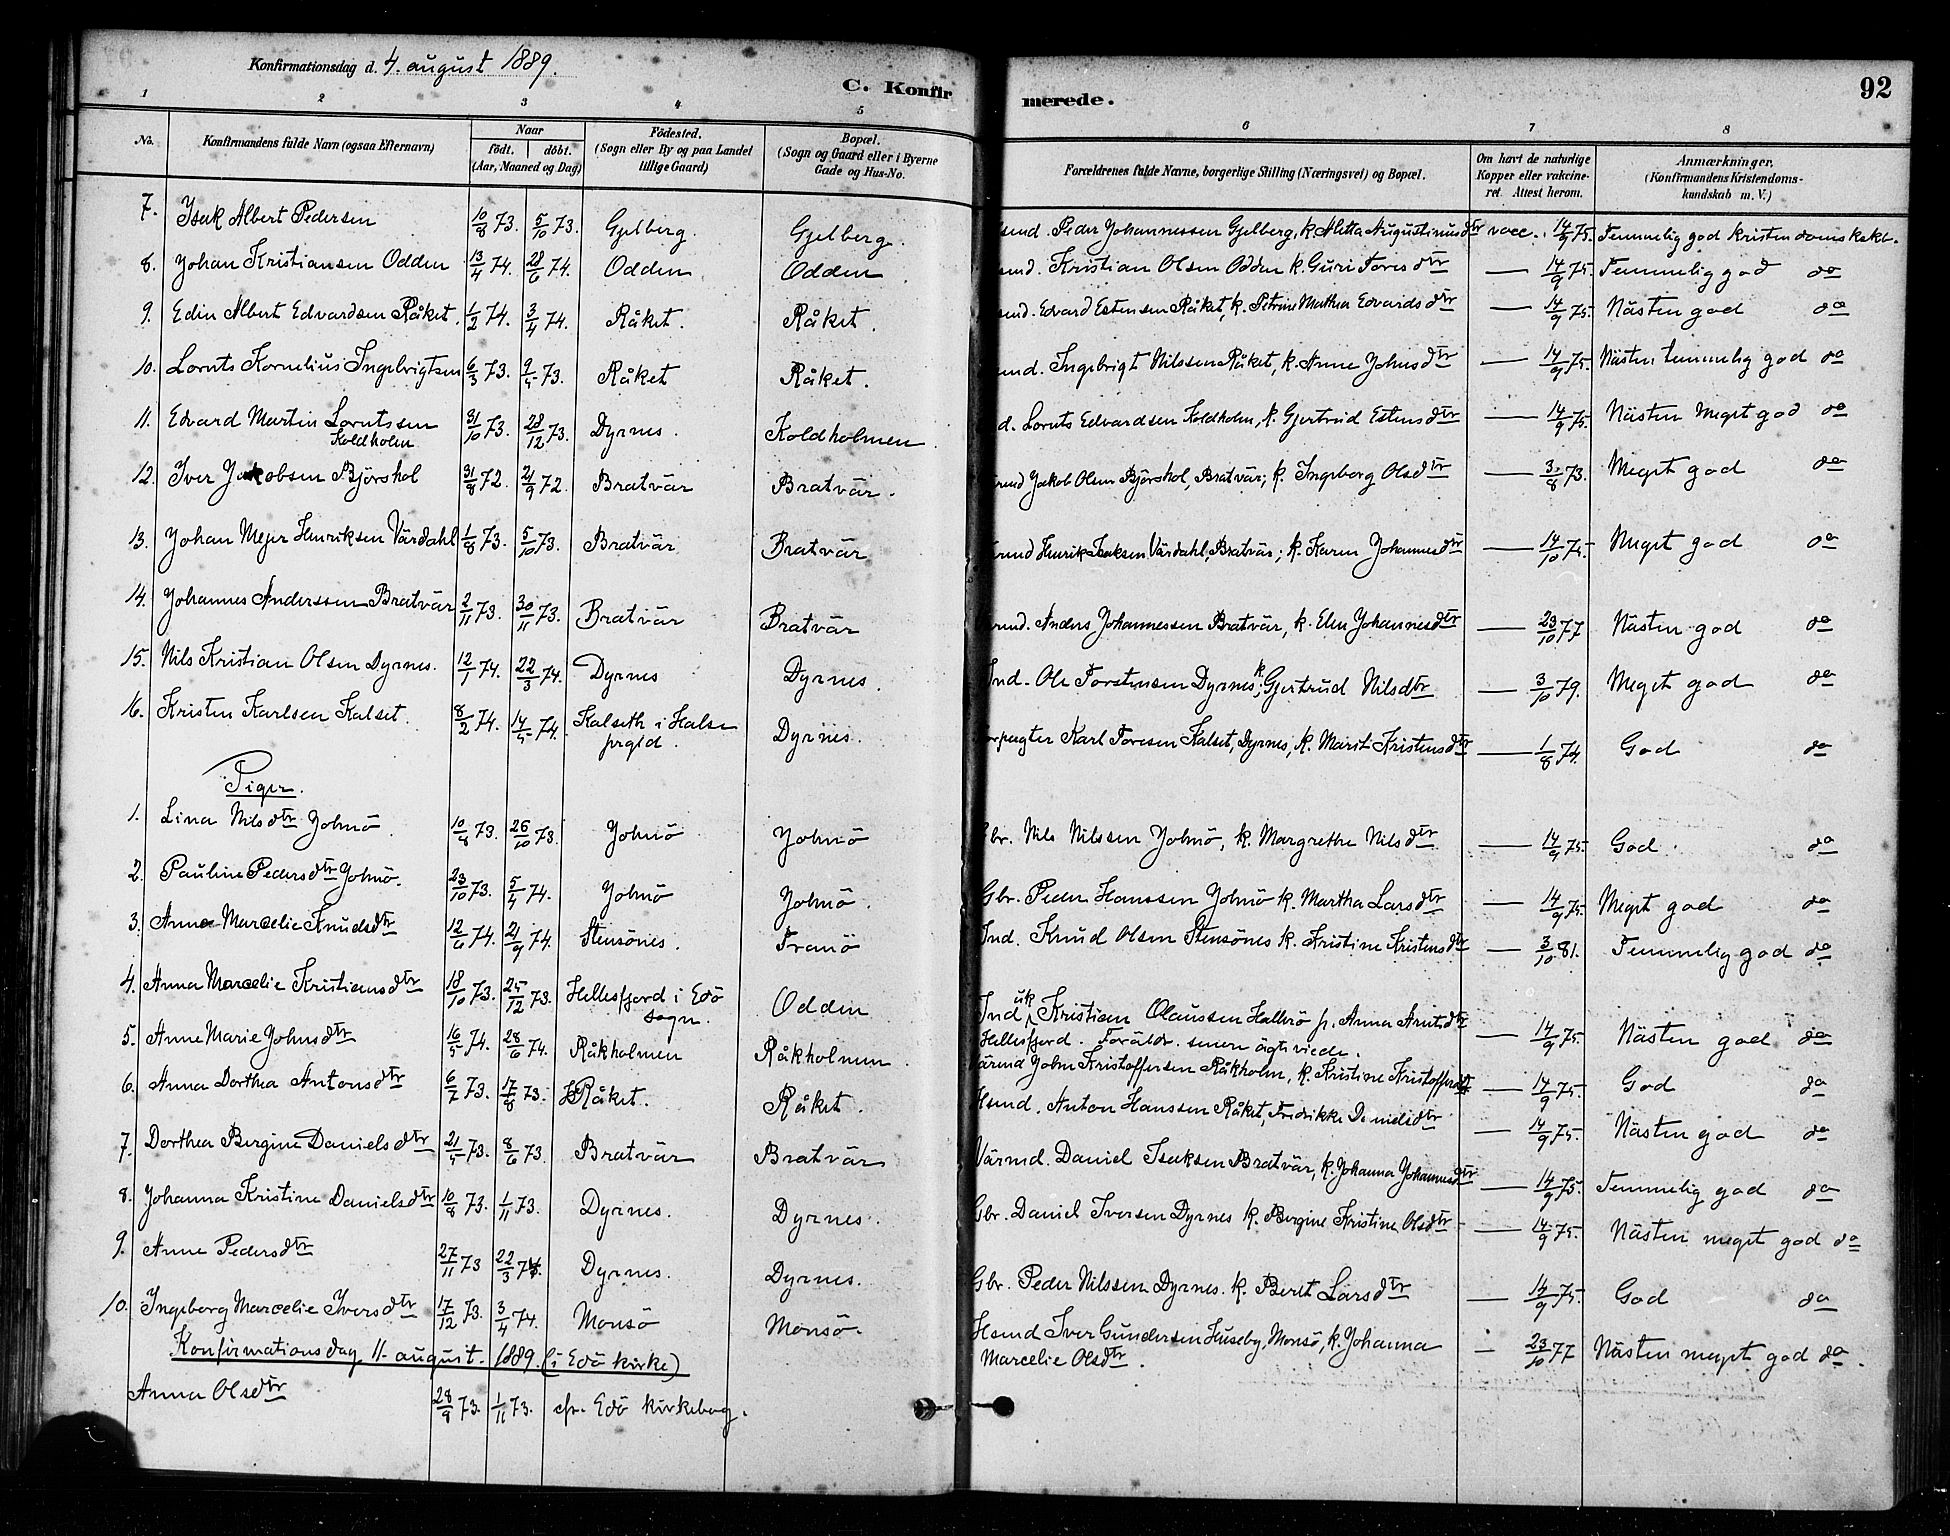 Konfirmationsdag d. 4. august 1889.
C. Konfirmerede.
92
1 2 3 4 5 6 7 8
No.
Konfirmandens fulde Navn (ogsaa Efternavn)
Naar
födt. döbt.
(Aar, Maaned og Dag)
Födested.
(Sogn eller By og paa Landet
tillige Gaard)
Bopæl.
(Sogn og Gaard eller i Byerne
Gade og Hus-No.
Forældrenes fulde Navne, borgerlige Stilling (Næringsvei) og Bopæl.
Om havt de naturlige
Kopper eller vakcine-
ret. Attest herom.
Anmærkninger.
(Konfirmandens Kristendoms-
kundskab m. V.)
7. Isak Albert Pedersen 10/8 73. 5/10 73. Gjelberg. Gjelberg. Peder Johannessen Gjelberg, k. Aletta Augustinusdtr vacc. 14/9 75. Temmelig god kristendomskskb.
8. Johan Kristiansen Odden 13/4 74. 28/6 74. Odden Odden Kristian Olsen Odden k. Guri Toresdtr — 14/9 75. Temmelig god do
9. Edin Albert Edvardsen Råket. 1/2 74. 3/4 74. Råket. Råket. Edvard Estensen Råket, k. Petrine Mathea Edvardsdtr — 14/9 75. Nästen god do
10. Lornts Kornelius Ingebrigtsen 6/3 73. 9/5 73. Råket Råket. Ingebrigt Nilssen Råket, k. Anne Johnsdtr — 14/9 75. Nästen temmelig god do
11. Edvard Martin Lorntssen
Koldholm 31/10 73. 28/12 73. Dyrnes. Koldholmen. Lornts Edvardsen Koldholm, k. Gjertrud Estensdtr — 14/9 75. Nästen Meget god do
12. Iver Jakobsen Björskol 31/8 72. 21/9 72. Bratvär Bratvär. Jakob Olsen Björskol, Bratvär; k. Ingeborg Olsdtr — 3/8 73. Meget god do
13. Johan Mejer Henriksen Värdahl 1/8 73. 5/10 73. Bratvär Bratvär Henrik Isaksen Värdahl, Bratvär; k. Karen Johannesdtr — 14/10 75. Meget god do
14. Johannes Anderssen Bratvär 2/11 73. 30/11 73. Bratvär Bratvär Anders Johannessen Bratvär, k. Elen Johannesdtr — 23/10 77 Nästen god do
15. Nils Kristian Olsen Dyrnes. 12/1 74. 22/3 74. Dyrnes Dyrnes. Ind. Ole Torstensen Dyrnes, k. Gjertrud Nilsdtr — 3/10 79. Meget god do
16. Kristen Karlsen Kalset. 8/2 74. 14/5 74. Kalseth i Halse
prgld. Dyrnes. Karl Toresen Kalset, Dyrnes, k. Marit Kristensdtr — 1/8 74. God do
Piger.
1. Lina Nilsdtr Jobnö. 10/8 73. 26/10 73. Jobnö Jobnö Gbr. Nils Nilssen Jobnö, k. Margrethe Nilsdtr — 14/9 75. God. do
2. Pauline Pedersdtr Jobnö. 23/10 73. 5/4 74. Jobnö Jobnö. Gbr. Peder Hanssen Jobnö k. Martha Larsdtr — 14/9 75. Meget god do
3. Anne Marcelie Knudsdtr 12/6 74. 21/9 74. Stensönes. Tranö Ind. Knud Olsen Stensönes k. Kristine Kristensdtr — 3/10 81. Temmelig god do
4. Anna Marcelie Kristiansdtr 18/10 73. 25/12 73. Hellesfjord i Edö
sogn. Odden Ind. uk Kristian Olaussen Hallesö p. Anna Arntsdtr
Hellesfjord. Foräldr. senere ägteviede. — 14/9 75. Nästen god do
5. Anne Marie Johnsdtr 16/5 74. 28/6 74. Råkholmen Råkholmen. John Kristoffersen Råkholm, k. Kristine Kristoffersdtr — 14/9 75. God do
6. Anna Dorthea Antonsdtr 6/7 73. 17/8 73. Råket. Råket. Hsmd. Anton Hanssen Råket, Fredrikke Danielsdtr — 14/9 75. Nästen god do
7. Dorthea Bergine Danielsdtr 21/5 73. 8/6 73. Bratvär Bratvär Värmd. Daniel Isaksen Bratvär, k. Johanna Johannesdtr — 14/9 75. Temmelig god do
8. Johanna Kristine Danielsdtr 10/8 73. 1/11 73. Dyrnes. Dyrnes. Gbr. Daniel Iversen Dyrnes k. Bergine Kristine Olsdtr — 14/9 75. Nästen meget god do
9. Anne Pedersdtr 27/11 73 22/3 74. Dyrnes. Dyrnes. Gbr. Peder Nilssen Dyrnes. k. Beret Larsdtr — 14/9 75. God do
10. Ingeborg Marcelie Iversdtr 17/12 73. 3/4 74. Monsö Monsö. Hsmd Iver Gundersen Huseby, Monsö, k. Johanna
Marcelie Olsdtr. — 23/10 77 Nästen meget god do.
Konfirmationsdag 11. august. 1889. (i Edö kirke)
Anna Olsdtr 28/9 73. 1/11 73. cfr. Edö kirkebog.